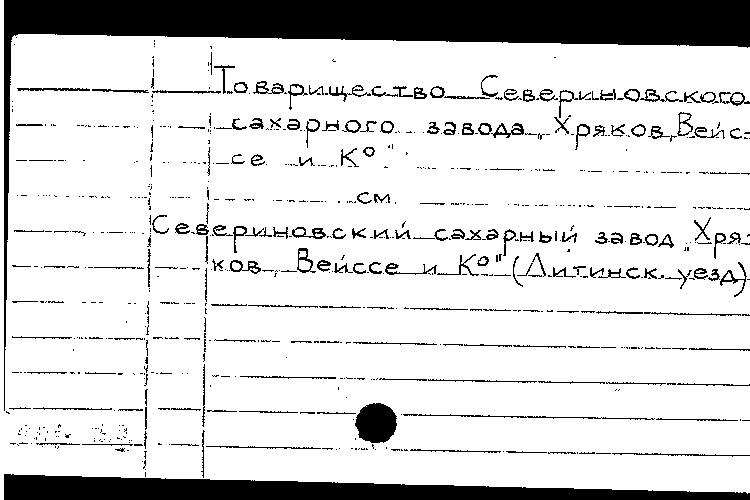 Товарищество Севериновского
сахарного завода „Хряков, Вейс-
се и К⁰"
см.
Севериновский сахарный завод „Хря-
ков, Вейссе и К⁰" (Литинск. уезд)